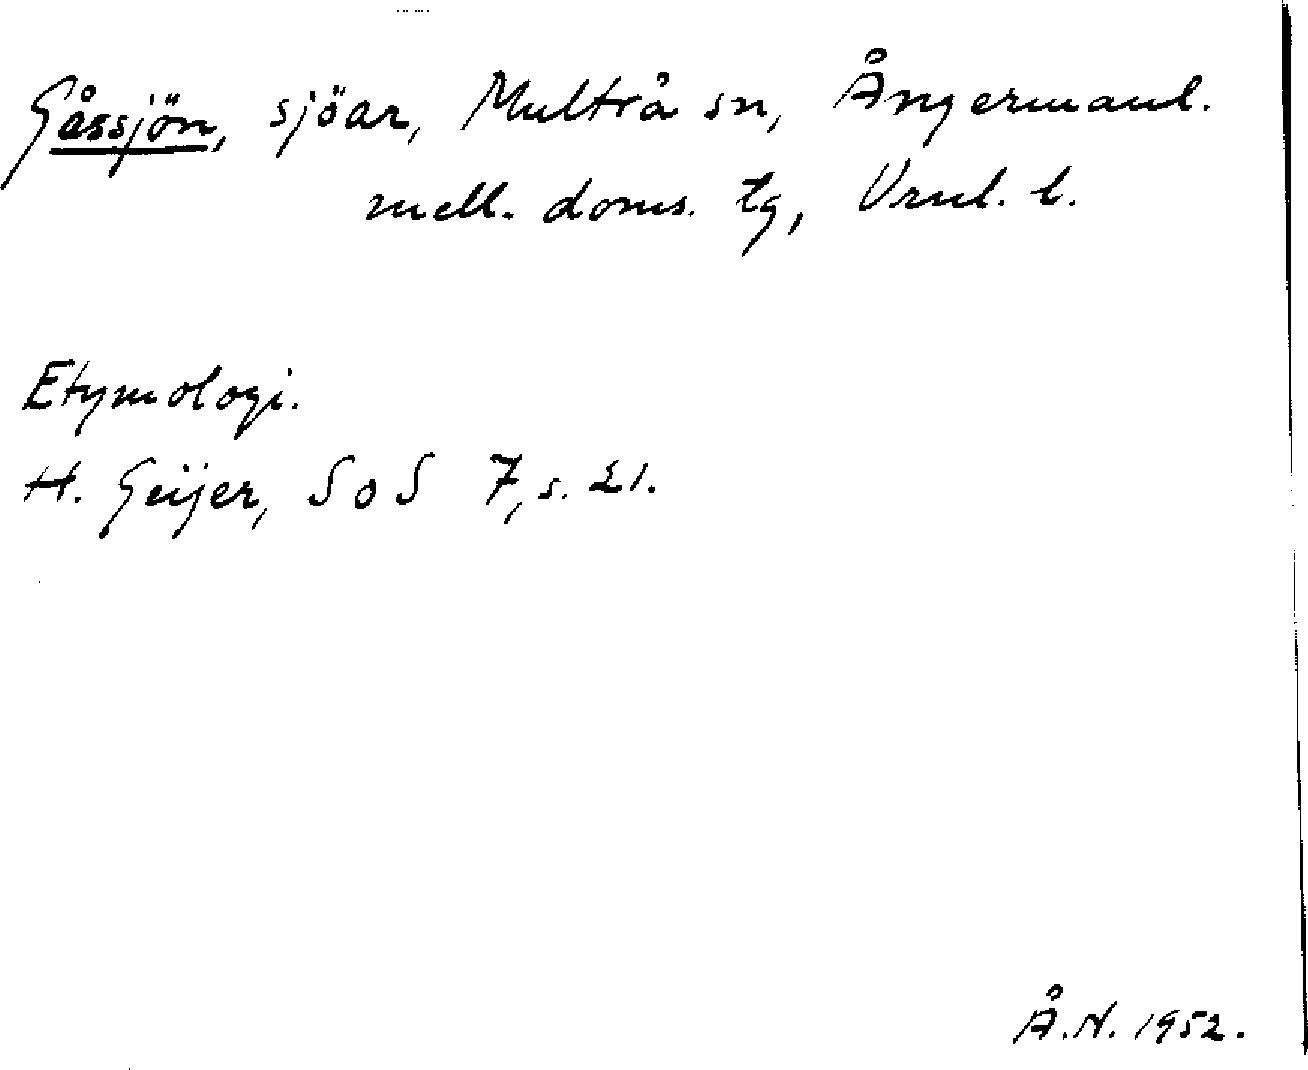 Gåssjön, sjöar, Multrå sn, Ångermanl.
mell. doms. tg, Vrnl. l.
Etymologi.
H. Geijer, SoS 7, s. 21.
Å.N. 1952.